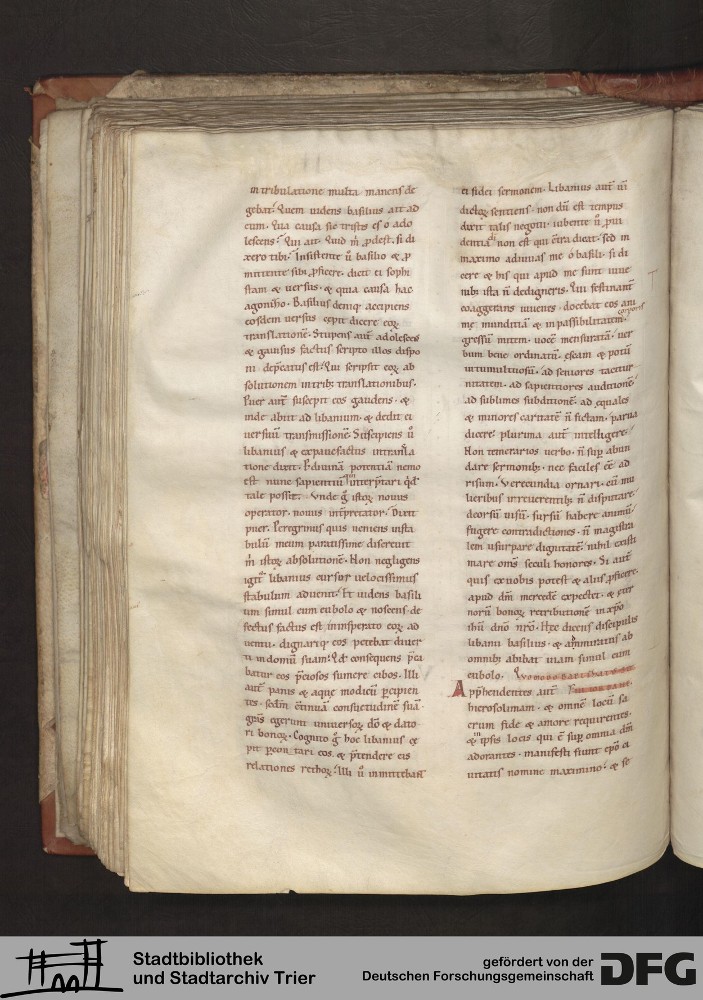 in tribulatione multa manens de
gebat. Quem uidens basilius ait ad
eum. Qua causa sic tristis es o ado
lescens? Qui ait. Quid m̄ ꝓdest si di
xero tibi? Insistente ū basilio & ꝓ
mittente sibi ꝓficere. dicit ei sophi
stam & uersus. & quia causa hac
agonizo. Basilius deniq; accipiens
eosdem uersus cepit dicere eoꝝ
translationē. Stupens aut̄ adolescens
& gauisus factus scripto illos dispo
ni depcatus est. Qui scripsit eoꝝ ab
solutionem in trib; translationibus.
Puer aut̄ suscepit eos gaudens. &
inde abiit ad libanium. & dedit ei
uersuū transmissionē. Suscipiens ū
libanius & expauefactus in transla
tione dixit. P diuinā potentiā nemo
est nunc sapientiū interp̄tari qd
tale possit. Vnde g istoꝝ nouus
operator. nouus int̄pretator. Dixit
puer. Peregrinus quis ueniens in sta
bulum meum paratissime disseruit
m̄ istoꝝ absolutionē. Non negligens
igit libanius cursor uelocissimus
stabulum aduenit. Et uidens basili
um simul cum eubolo & noscens. de
fectus factus est in insperato eoꝝ ad
uentu. dignariq; eos petebat diuer
ti in domū suam. Qd consequens p̄ca
batur eos p̄ciosos sumere cibos. Illi
aut̄ panis & aque modicū percipien
tes. sedm c̄tinuā consuetudinē suā.
grās egerunt uniuersoꝝ dō & dato
ri bonoꝝ. Cognito g hoc libanius ce
pit pcontari eos. & p̄tendere eis
relationes rethoꝝ. Illi ū inmittebant
ei fidei sermonem. Libanius aut̄ in
dieloꝝ sentiens. non dū est tempus
dixit talis negotii. iubente ū pui
dentia di non est qui c̄tra dicat. Sed in
maximo adiuuas me o basili. si di
cere & his qui apud me sunt iuue
nib; ista n̄ dedigneris. Qui festinant̄
coaggerans iuuenes. docebat eos ani
mę munditiā & inpassibilitatem corporis
gressū mitem. uocē mensuratā. uer
bum bene ordinatū. ęscam & potū
intumultuosū. ad seniores tacitur
nitatem. ad sapientiores auditionē.
ad sublimes subditionē. ad ęquales
& minores caritatē n̄ fictam. parua
dicere. plurima aut̄ intelligere.
Non temerarios uerbo. n̄ suꝑ abun
dare sermonib; nec faciles eē ad
risum. Verecundia ornari. cū mu
lieribus inreuerentib; n̄ disputare.
deorsū uisū. sursū habere animū.
fugere contradictiones. n̄ magistra
lem usurpare dignitatē. nihil existi
mare omīs seculi honores. Si aut̄
quis ex uobis potest & aliis ꝓficere.
apud dm̄ mercedē expectet. & ęter
norū bonoꝝ retributionē in xp̄o
ihū dnō nr̄o. Hęc dicens discipulis
libanii basilius. & āmiratus ab
omnib; abibat uiam simul cum
eubolo.
Apphendentes aut̄
hierosolimam. & omnē locū sa
crum fide & amore requirentes.
& in ipsis locis qui ē suꝑ omnia dm̄
adorantes. manifesti fiunt epō ci
uitatis nomine maximino. & se
Stadtbibliothek
und Stadtarchiv Trier
gefördert von der
Deutschen Forschungsgemeinschaft
DFG